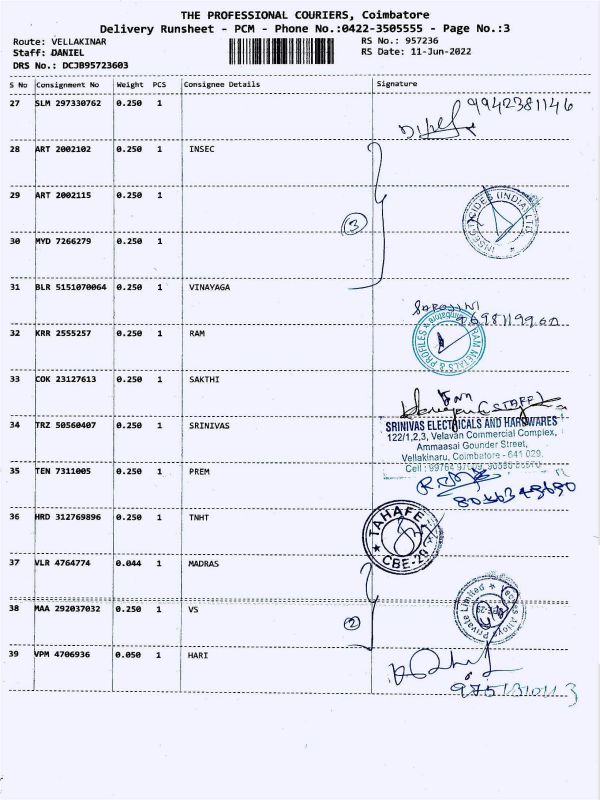 THE PROFESSIONAL COURIERS, Coimbatore
Delivery Runsheet - PCM - Phone No.:0422-3505555 - Page No.:3
Route: VELLAKINAR
RS No.: 957236
Staff: DANIEL
RS Date: 11-Jun-2022
DRS No.: DCJB95723603
S No Consignment No Weight PCS Consignee Details Signature
27 SLM 297330762 0.250 1
9942381146
28 ART 2002102 0.250 1 INSEC
29 ART 2002115 0.250 1
3
INSECTICIDES (INDIA) LTD.
30 MYD 7266279 0.250 1
31 BLR 5151070064 0.250 1 VINAYAGA
SAROJINI
32 KRR 2555257 0.250 1 RAM
RAM METALS & PROFILES
33 COK 23127613 0.250 1 SAKTHI
(STAFF)
34 TRZ 50560407 0.250 1 SRINIVAS
SRINIVAS ELECTRICALS AND HARDWARES
122/1,2,3, Velavan Commercial Complex,
Ammaasai Gounder Street,
Vellakinaru, Coimbatore - 641 029.
35 TEN 7311005 0.250 1 PREM
36 HRD 312769896 0.250 1 TNHT
37 VLR 4764774 0.044 1 MADRAS
38 MAA 292037032 0.250 1 VS
2
Alloys Private Limited
39 VPM 4706936 0.050 1 HARI